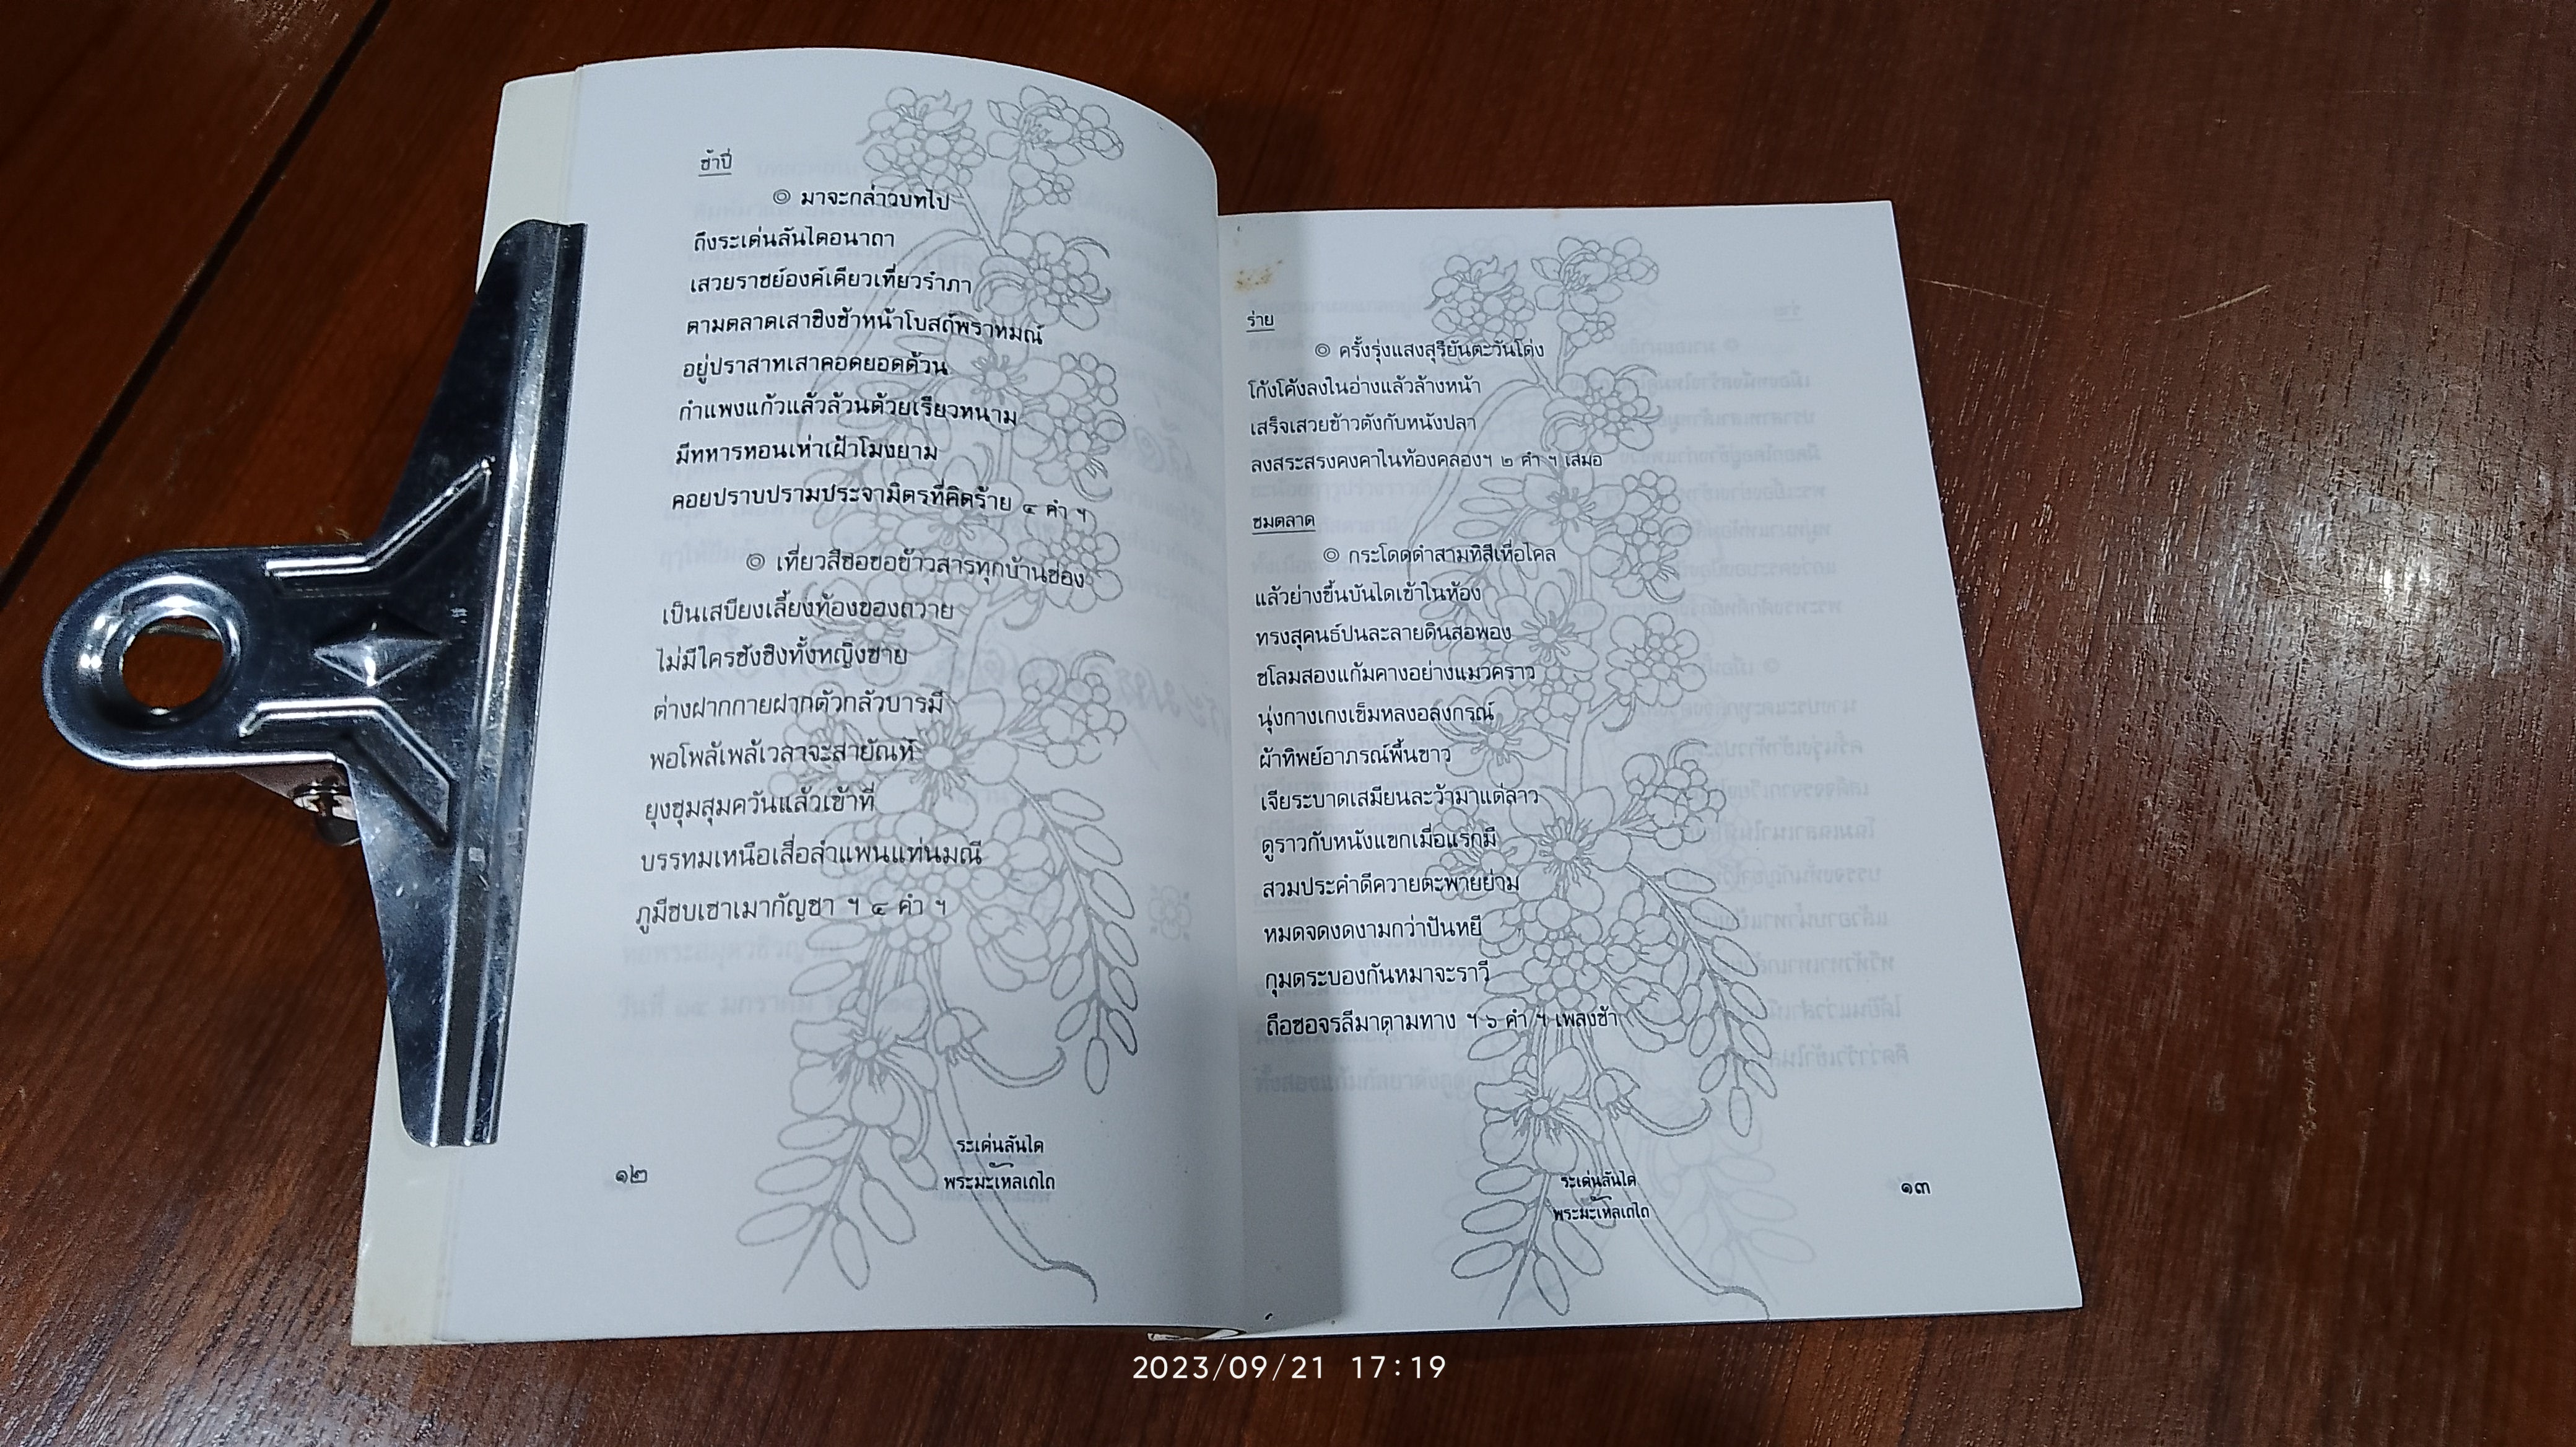 ช้าปี่
๏ มาจะกล่าวบทไป
ถึงระเด่นลันไดอนาถา
เสวยราชย์องค์เดียวเที่ยวรำภา
ตามตลาดเสาชิงช้าหน้าโบสถ์พราหมณ์
อยู่ปราสาทเสาคอดยอดด้วน
กำแพงแก้วแล้วล้วนด้วยเรียวหนาม
มีทหารหอนเห่าเฝ้าโมงยาม
คอยปราบปรามประจามิตรที่คิดร้าย ๔ คำ ฯ
๏ เที่ยวสีซอขอข้าวสารทุกบ้านช่อง
เป็นเสบียงเลี้ยงท้องของถวาย
ไม่มีใครชังชิงทั้งหญิงชาย
ต่างฝากกายฝากตัวกลัวบารมี
พอโพล้เพล้เวลาจะสายัณห์
ยุงชุมสุมควันแล้วเข้าที่
บรรทมเหนือเสื่อลำแพนแท่นมณี
ภูมีซบเซาเมากัญชา ฯ ๔ คำ ฯ
ระเด่นลันได
พระมะเหลเถไถ
๑๒
ร่าย
๏ ครั้งรุ่งแสงสุริยันตะวันโด่ง
โก้งโค้งลงในอ่างแล้วล้างหน้า
เสร็จเสวยข้าวตังกับหนังปลา
ลงสระสรงคงคาในท้องคลองฯ ๒ คำ ฯ เสมอ
ชมตลาด
๏ กระโดดดำสามทีสีเหื่อไคล
แล้วย่างขึ้นบันไดเข้าในห้อง
ทรงสุคนธ์ปนละลายดินสอพอง
ชโลมสองแก้มคางอย่างแมวคราว
นุ่งกางเกงเข็มหลงอลงกรณ์
ผ้าทิพย์อาภรณ์พื้นขาว
เจียระบาดเสมียนละว้ามาแต่ลาว
ดูราวกับหนังแขกเมื่อแรกมี
สวมประคำดีควายตะพายย่าม
หมดจดงดงามกว่าปันหยี
กุมตระบองกันหมาจะราวี
ถือซอจรลีมาตามทาง ฯ ๖ คำ ฯ เพลงช้า
ระเด่นลันได
พระมะเหลเถไถ
๑๓
2023/09/21 17:19